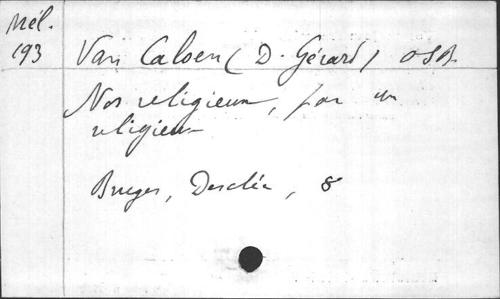 Mél.
193
Van Caloen (D. Gérard) OSB.
Nos religieux, par un
religieux
Bruges, Desclée, 8